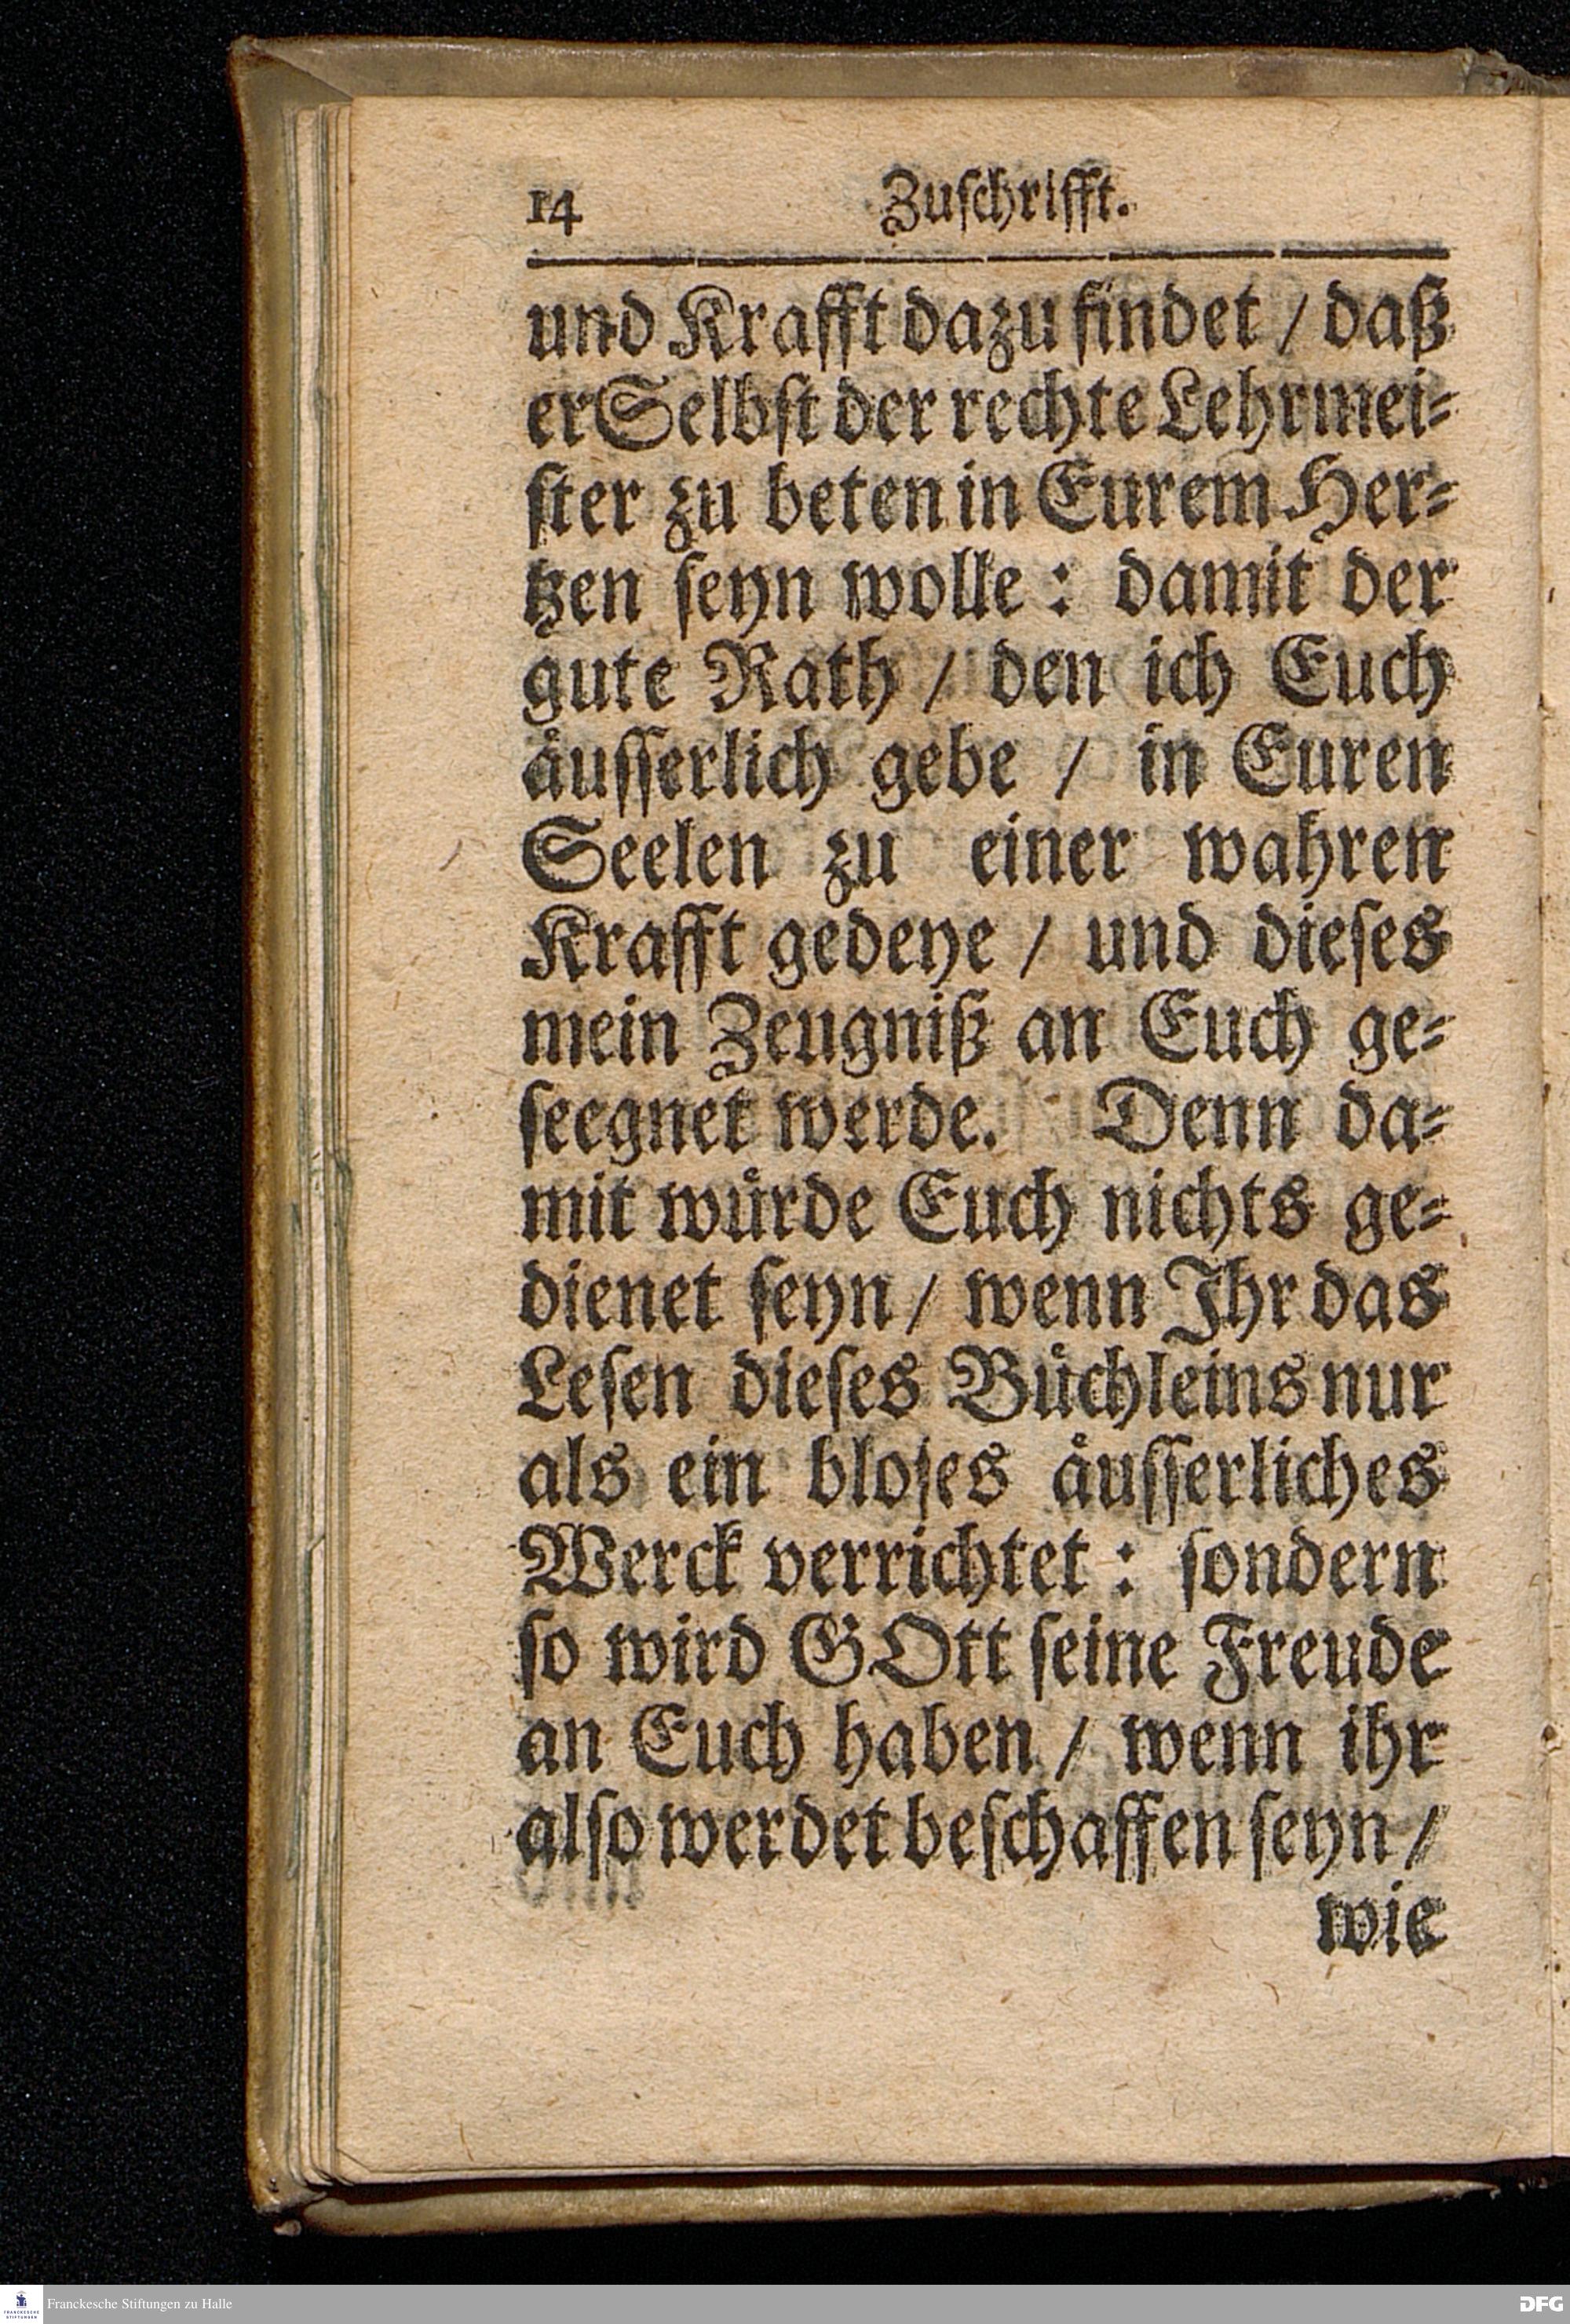 14 Zuſchrifft.
und Krafft dazu findet / daß
er Selbſt der rechte Lehrmei-
ſter zu beten in Eurem Her-
tzen ſeyn wolle : damit der
gute Rath / den ich Euch
aͤuſſerlich gebe / in Euren
Seelen zu einer wahren
Krafft gedeye / und dieſes
mein Zeugniß an Euch ge-
ſeegnet werde. Denn da-
mit wuͤrde Euch nichts ge-
dienet ſeyn / wenn Ihr das
Leſen dieſes Buͤchleins nur
als ein bloſes aͤuſſerliches
Werck verrichtet : ſondern
ſo wird GOtt ſeine Freude
an Euch haben / wenn ihr
alſo werdet beſchaffen ſeyn /
wie
FRANCKESCHE STIFTUNGEN
Franckesche Stiftungen zu Halle
DFG